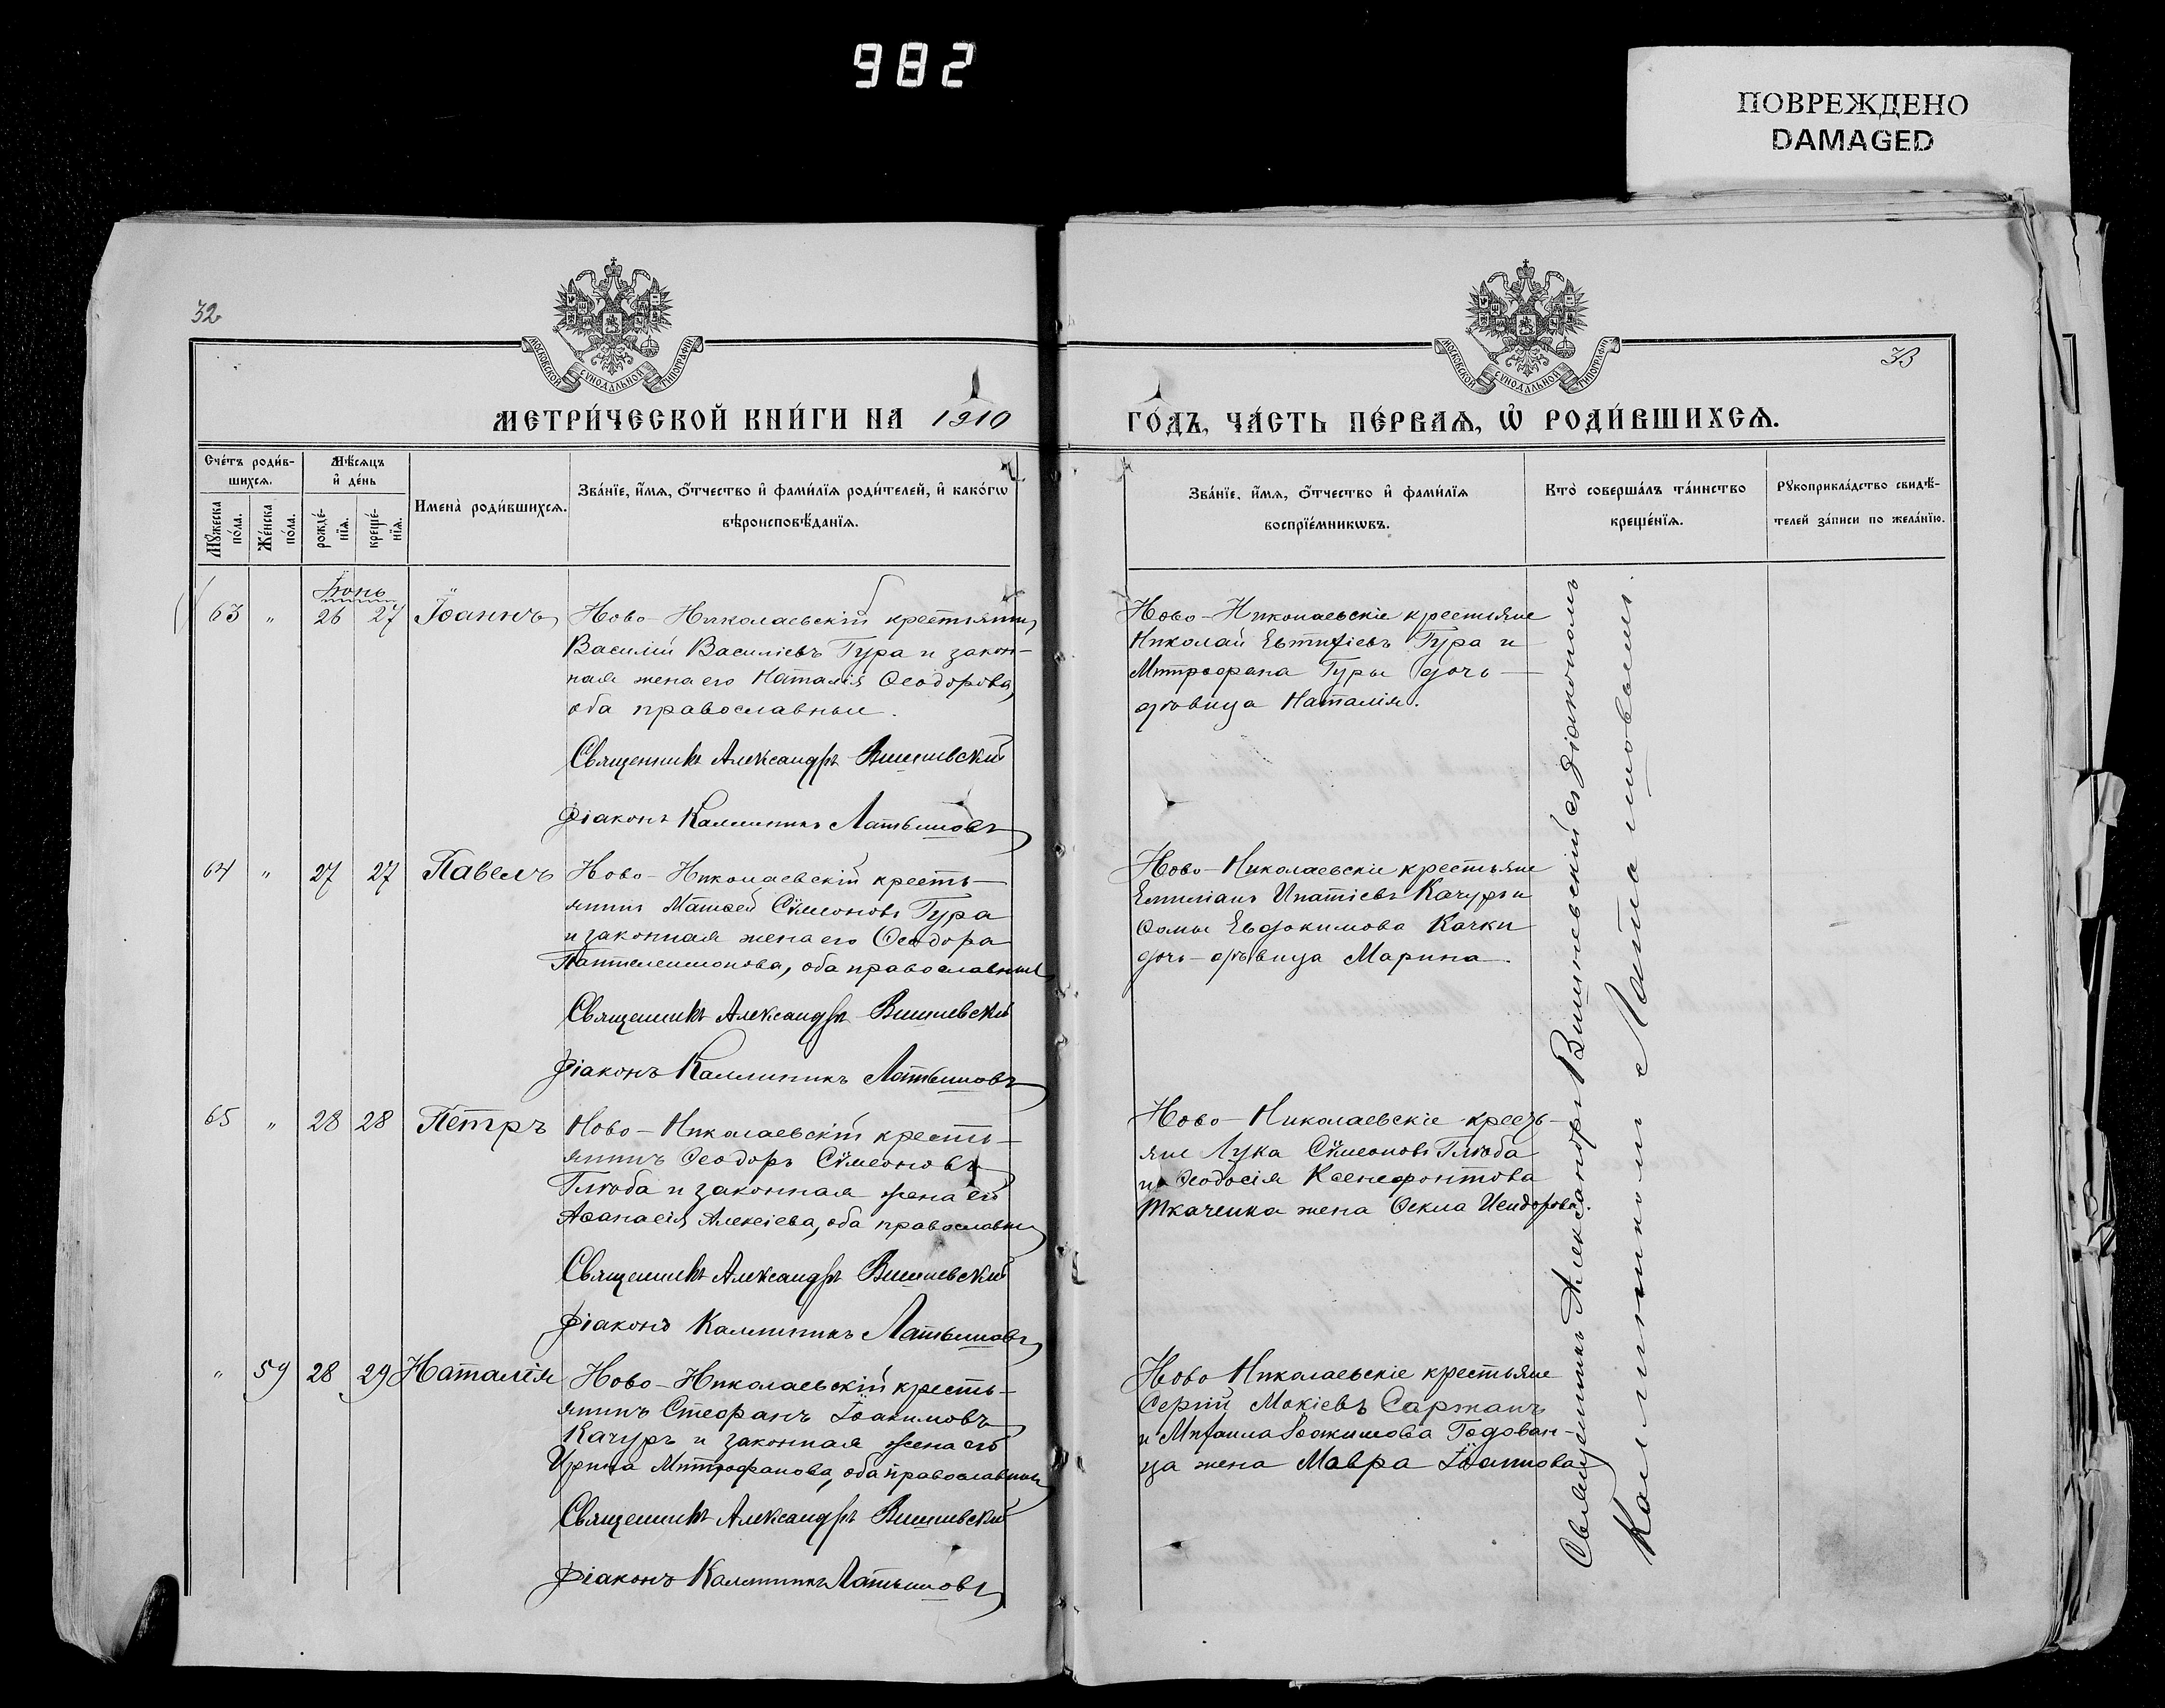 982
ПОВРЕЖДЕНО
DAMAGED
32
33
МОСКОВСКОЙ СѴНОДАЛЬНОЙ ТИПОГРАФІИ
МОСКОВСКОЙ СѴНОДАЛЬНОЙ ТИПОГРАФІИ
МЕТРИ́ЧЕСКОЙ КНИ́ГИ НА 1910
ГО́ДЪ, ЧА́СТЬ ПЕ́РВАѦ, Ѽ РОДИ́ВШИХСѦ.
Сче́тъ роди́в-
шихсѧ.
Мѣ́сѧцъ
и҆ де́нь
Мꙋ́жеска
по́ла.
Же́нска
по́ла.
рожде́-
нїѧ.
креще́-
нїѧ.
Имена̀ роди́вшихсѧ.
Зва́нїе, и҆́мѧ, ѻ҆́тчество и҆ фами́лїѧ роди́телей, и҆ како́гѡ
вѣроисповѣ́данїѧ.
Зва́нїе, и҆́мѧ, ѻ҆́тчество и҆ фами́лїѧ
воспрїе́мникѡвъ.
Кто̀ соверша́лъ та́инство
креще́нїѧ.
Рꙋкоприкла́дство свидѣ́-
телей за́писи по жела́нїю.
Іюнь
63 " 26 27 Іоаннъ
Ново-Николаевскій крестьянинъ
Василій Василіевъ Гура и закон-
ная жена его Наталія Ѳеодорова,
оба православные.
Священникъ Александръ Вишневскій
Діаконъ Каллиникъ Латышовъ
Ново-Николаевскіе крестьяне
Николай Евтихіевъ Гура и
Митрофана Гуры дочь-
дѣвица Наталія.
64 " 27 27 Павелъ
Ново-Николаевскій кресть-
янинъ Матѳей Сѵмеоновъ Гура
и законная жена его Ѳеодора
Пантелеимонова, оба православные
Священникъ Александръ Вишневскій
Діаконъ Каллиникъ Латышовъ
Ново-Николаевскіе крестьяне
Емиліанъ Ипатіевъ Качуръ и
Ѳомы Евдокимова Качки
дочь-дѣвица Марина.
65 " 28 28 Петръ
Ново-Николаевскій кресть-
янинъ Ѳеодоръ Сѵмеоновъ
Глюба и законная жена его
Аѳанасія Алексіева, оба православные
Священникъ Александръ Вишневскій
Діаконъ Каллиникъ Латышовъ
Ново-Николаевскіе кресть-
яне Лука Сѵмеоновъ Глюба
и Ѳеодосія Ксенофонтова
Ткаченка жена Ѳекла Исидорова.
" 59 28 29 Наталія
Ново-Николаевскій кресть-
янинъ Стефанъ Іоакимовъ
Качуръ и законная жена его
Ирина Митрофанова, оба православные
Священникъ Александръ Вишневскій
Діаконъ Каллиникъ Латышовъ
Ново Николаевскіе крестьяне
Сергій Мокіевъ Саржанъ
и Михаила Іоакимова Годован-
ца жена Мавра Іоаннова
Священникъ Александръ Вишневскій съ діакономъ
Каллиникомъ Латышовымъ.